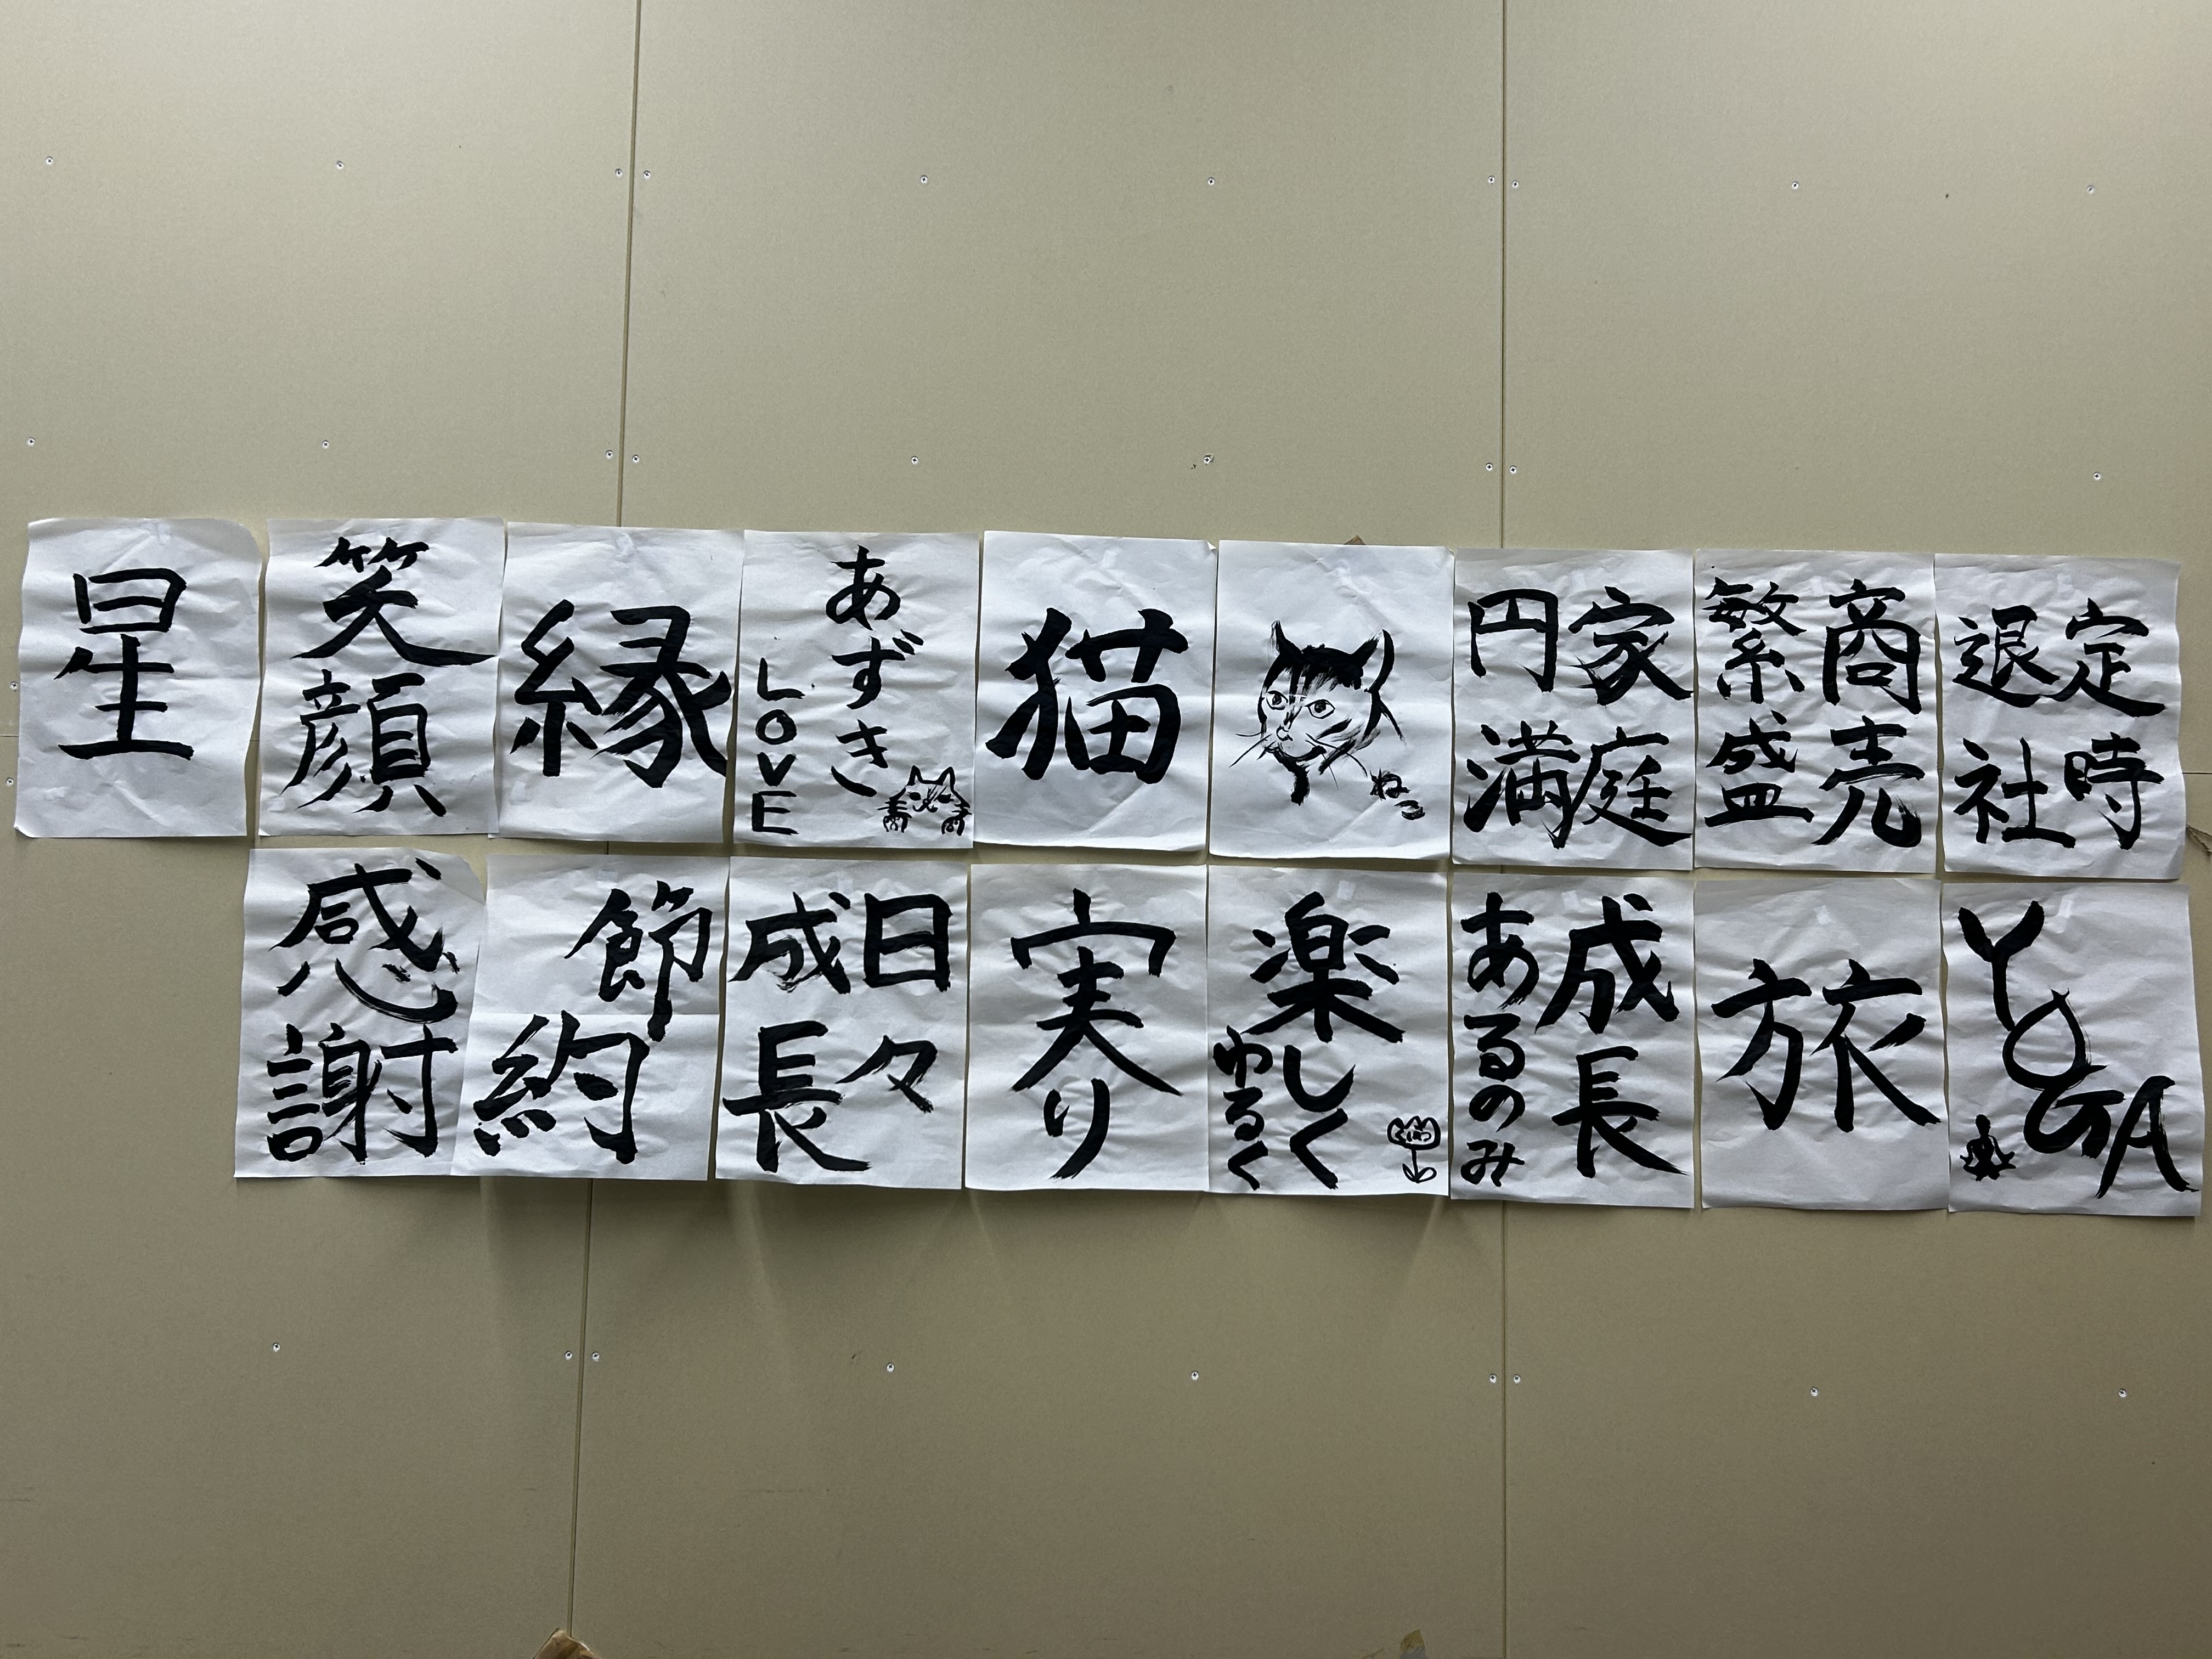 星
笑顔
縁
あずき
LOVE
猫
ねこ
家庭
円満
商売
繁盛
定時
退社
感謝
節約
日々
成長
実り
楽しく
ゆるく
成長
あるのみ
旅
YOGA